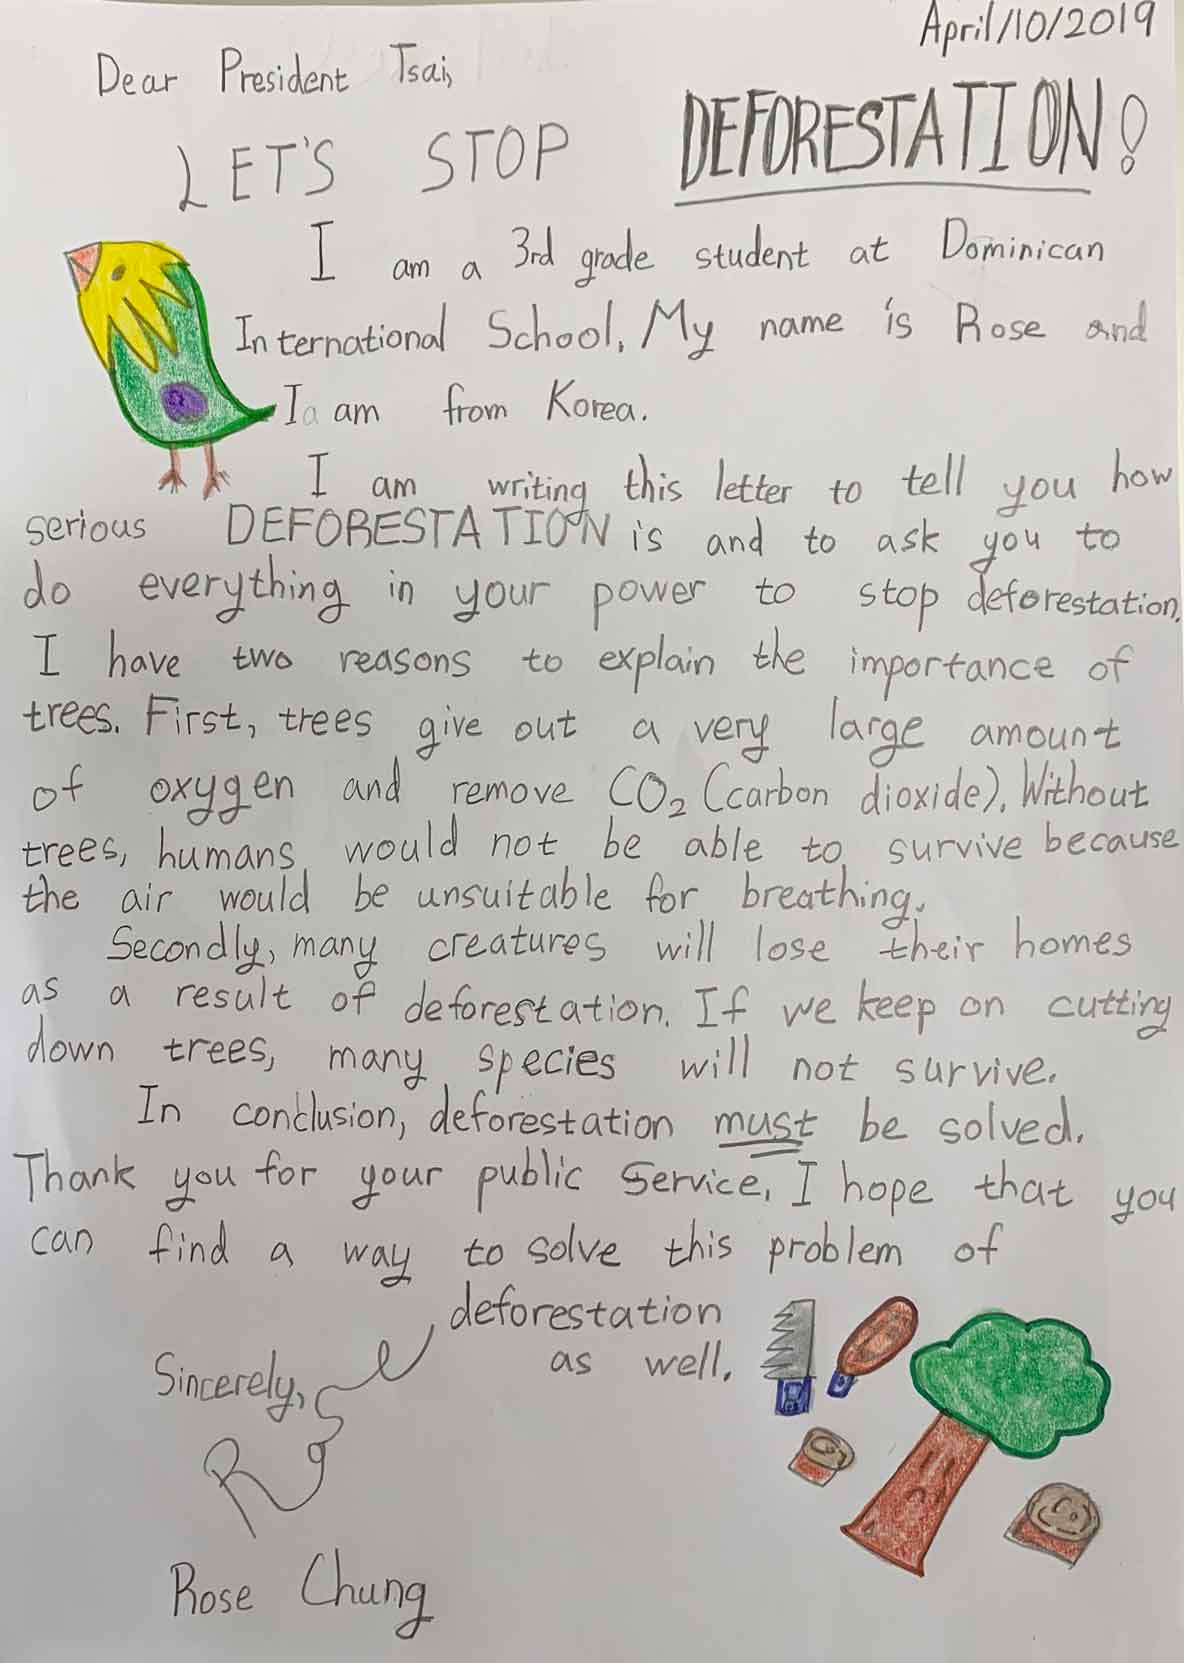 April/10/2019
Dear President Tsai,
LET'S STOP DEFORESTATION!
I am a 3rd grade student at Dominican
International School. My name is Rose and
I am from Korea.
I am writing this letter to tell you how
serious DEFORESTATION is and to ask you to
do everything in your power to stop deforestation.
I have two reasons to explain the importance of
trees. First, trees give out a very large amount
of oxygen and remove CO₂ (carbon dioxide). Without
trees, humans would not be able to survive because
the air would be unsuitable for breathing.
Secondly, many creatures will lose their homes
as a result of deforestation. If we keep on cutting
down trees, many species will not survive.
In conclusion, deforestation must be solved.
Thank you for your public Service. I hope that you
can find a way to solve this problem of
deforestation
as well.
Sincerely,
Rose
Rose Chung